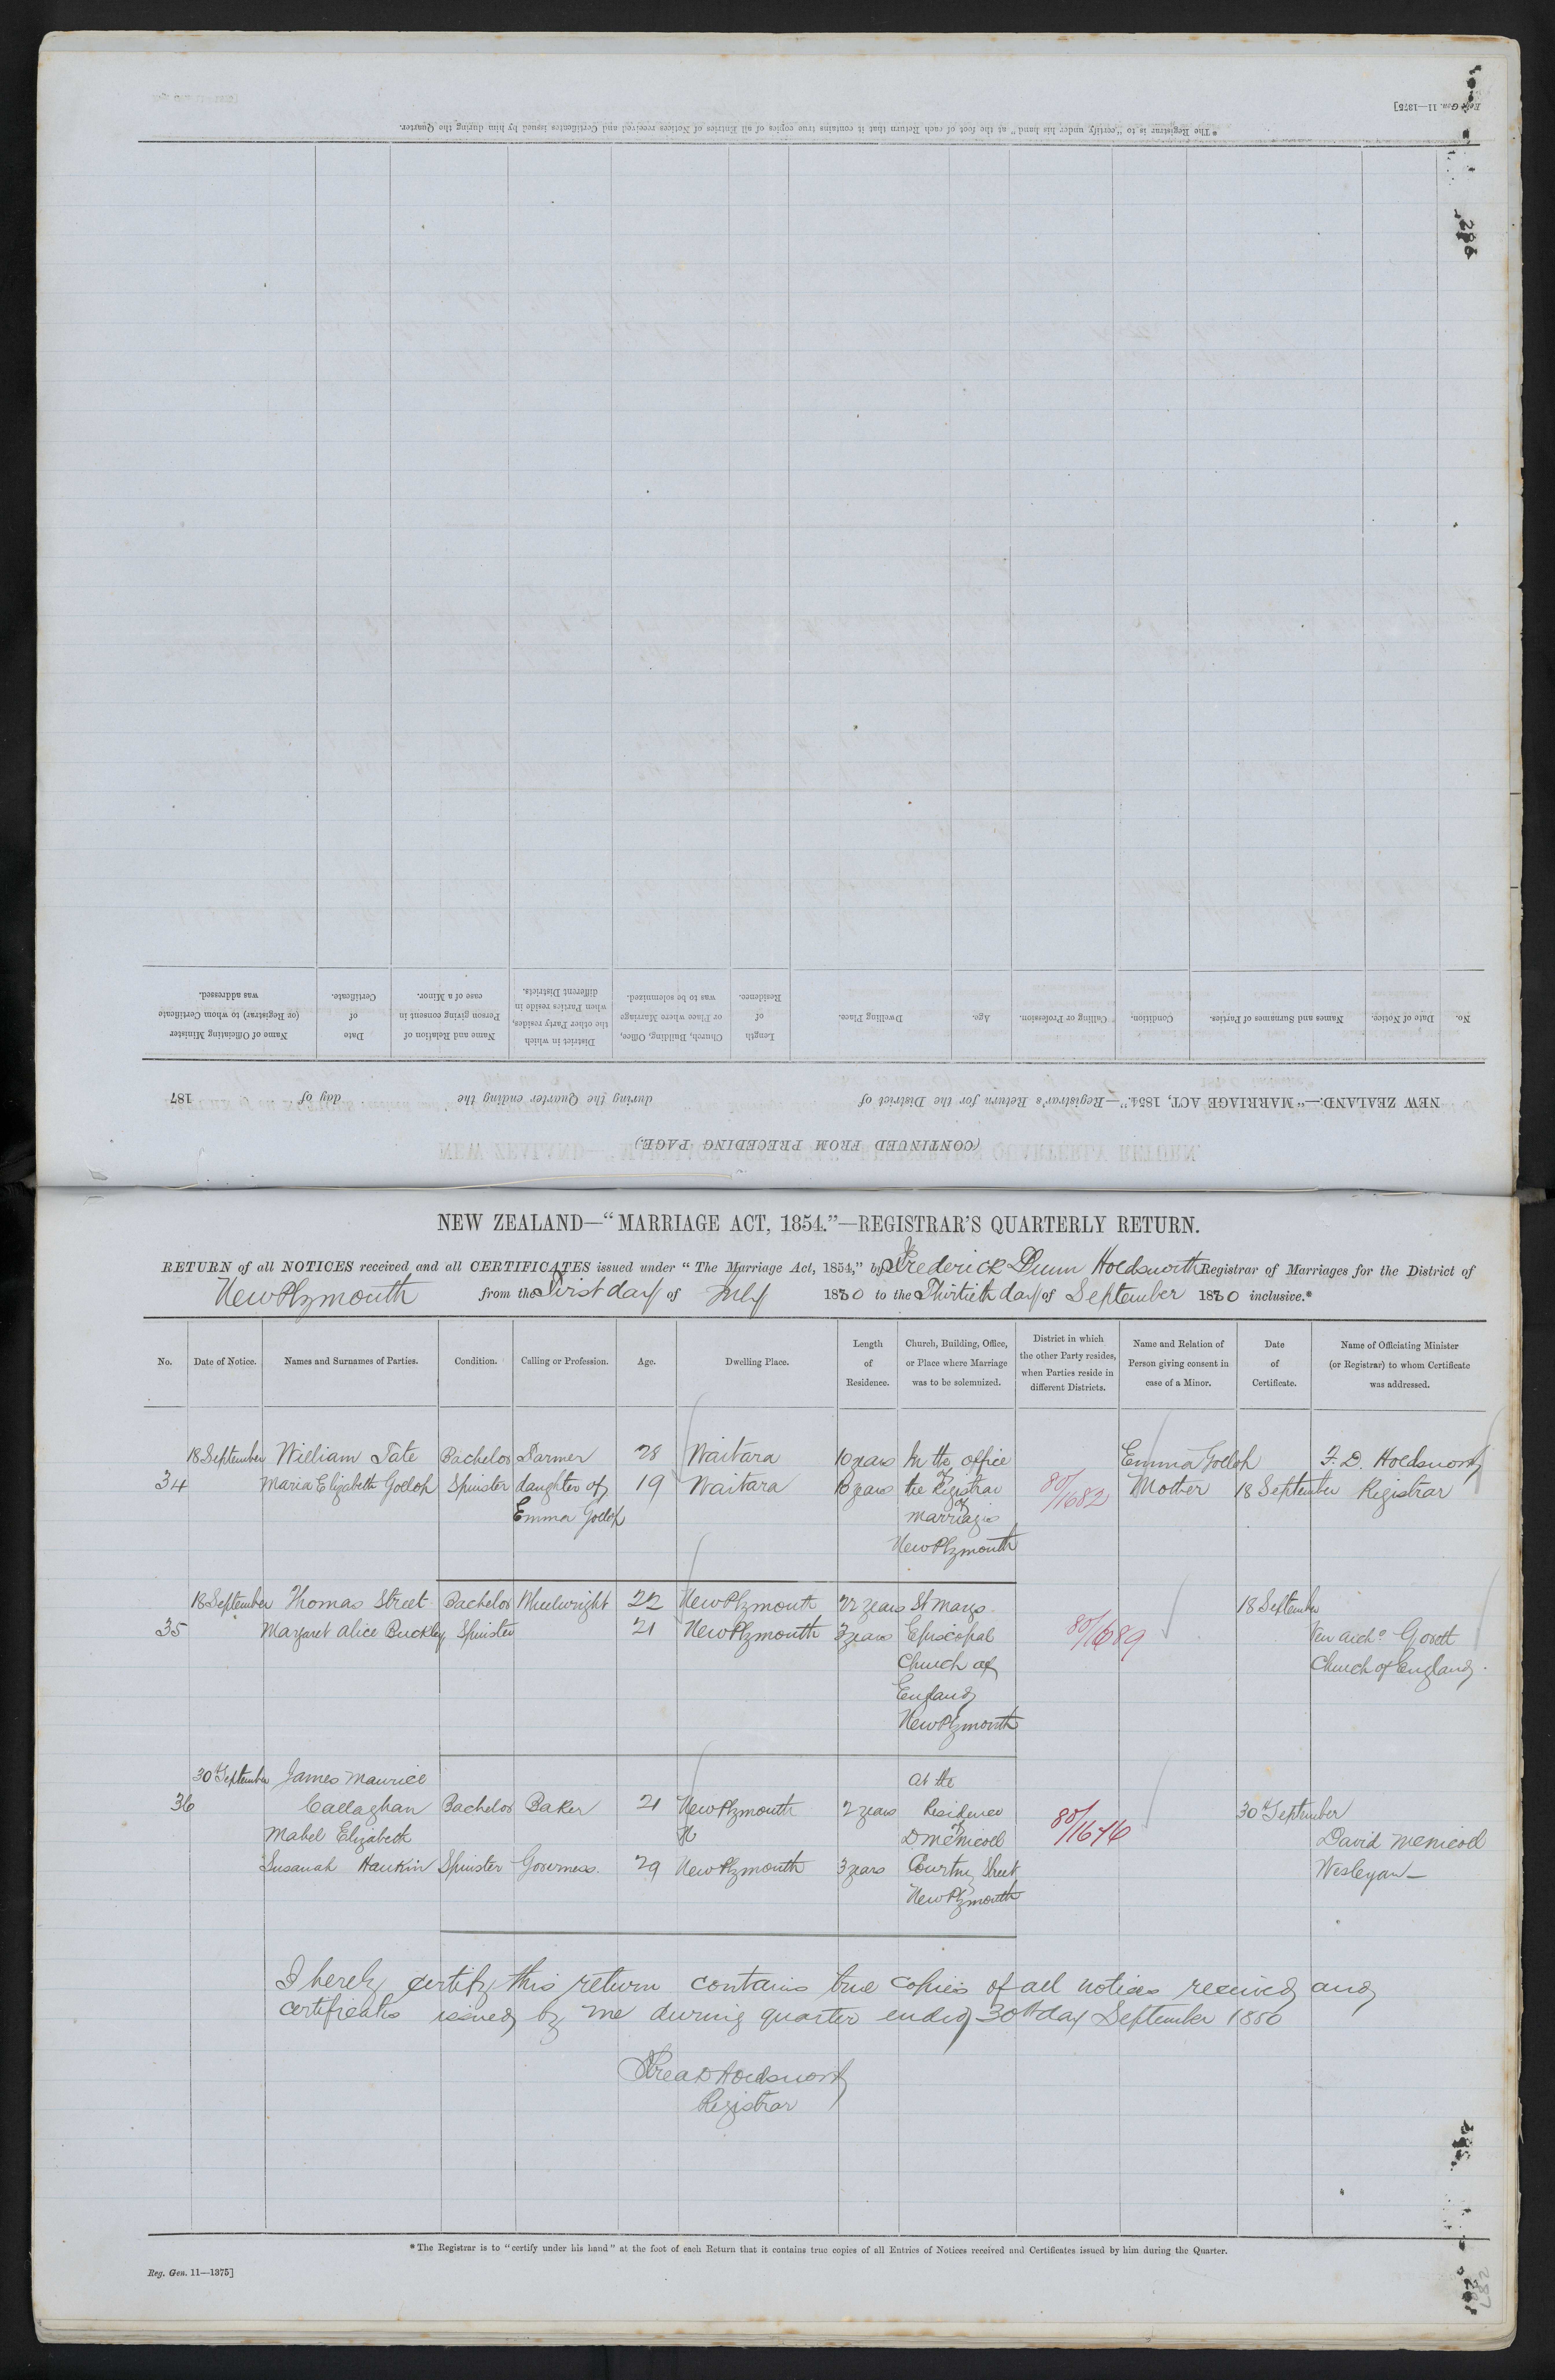 Reg. Gen. 11—1375]
*The Registrar is to "certify under his hand" at the foot of each Return that it contains true copies of all Entries of Notices received and Certificates issued by him during the Quarter.
(CONTINUED FROM PRECEDING PAGE.)
NEW ZEALAND:—"MARRIAGE ACT, 1854."—Registrar's Return for the District of during the Quarter ending the day of 187
No. Date of Notice. Names and Surnames of Parties. Condition. Calling or Profession. Age. Dwelling Place. Length of Residence. Church, Building, Office, or Place where Marriage was to be solemnized. District in which the other Party resides, when Parties reside in different Districts. Name and Relation of Person giving consent in case of a Minor. Date of Certificate. Name of Officiating Minister (or Registrar) to whom Certificate was addressed.
NEW ZEALAND—"MARRIAGE ACT, 1854."—REGISTRAR'S QUARTERLY RETURN.
RETURN of all NOTICES received and all CERTIFICATES issued under "The Marriage Act, 1854," by Frederick Dunn Holdsworth Registrar of Marriages for the District of
New Plymouth from the First day of July 1880 to the Thirtieth day of September 1880 inclusive.*
No. Date of Notice. Names and Surnames of Parties. Condition. Calling or Profession. Age. Dwelling Place. Length of Residence. Church, Building, Office, or Place where Marriage was to be solemnized. District in which the other Party resides, when Parties reside in different Districts. Name and Relation of Person giving consent in case of a Minor. Date of Certificate. Name of Officiating Minister (or Registrar) to whom Certificate was addressed.
18 September William Tate Bachelor Farmer 28 Waitara 10 years In the office Emma Gollop F. D. Holdsworth
34 Maria Elizabeth Gollop Spinster daughter of 19 Waitara years of the Registrar 80/1682 Mother 18 September Registrar
Emma Gollop of Marriages
New Plymouth
18 September Thomas Street Bachelor Wheelwright 22 New Plymouth 22 years St Marys 18 September
35 Margaret Alice Buckley Spinster 21 New Plymouth 3 years Episcopal 80/1689 Ven Archd Govett
Church of Church of England.
England
New Plymouth
30th September James Maurice At the
36 Callaghan Bachelor Baker 21 New Plymouth 2 years Residence 80/1676 30th September
Mabel Elizabeth of D McNicoll David McNicoll
Susanah Hankin Spinster Governess. 29 New Plymouth 3 years Courtney Street Wesleyan—
New Plymouth
I hereby certify this return contains true copies of all notices received and
certificates issued by me during quarter ended 30th day September 1880
Fred D Holdsworth
Registrar
*The Registrar is to "certify under his hand" at the foot of each Return that it contains true copies of all Entries of Notices received and Certificates issued by him during the Quarter.
Reg. Gen. 11—1375]